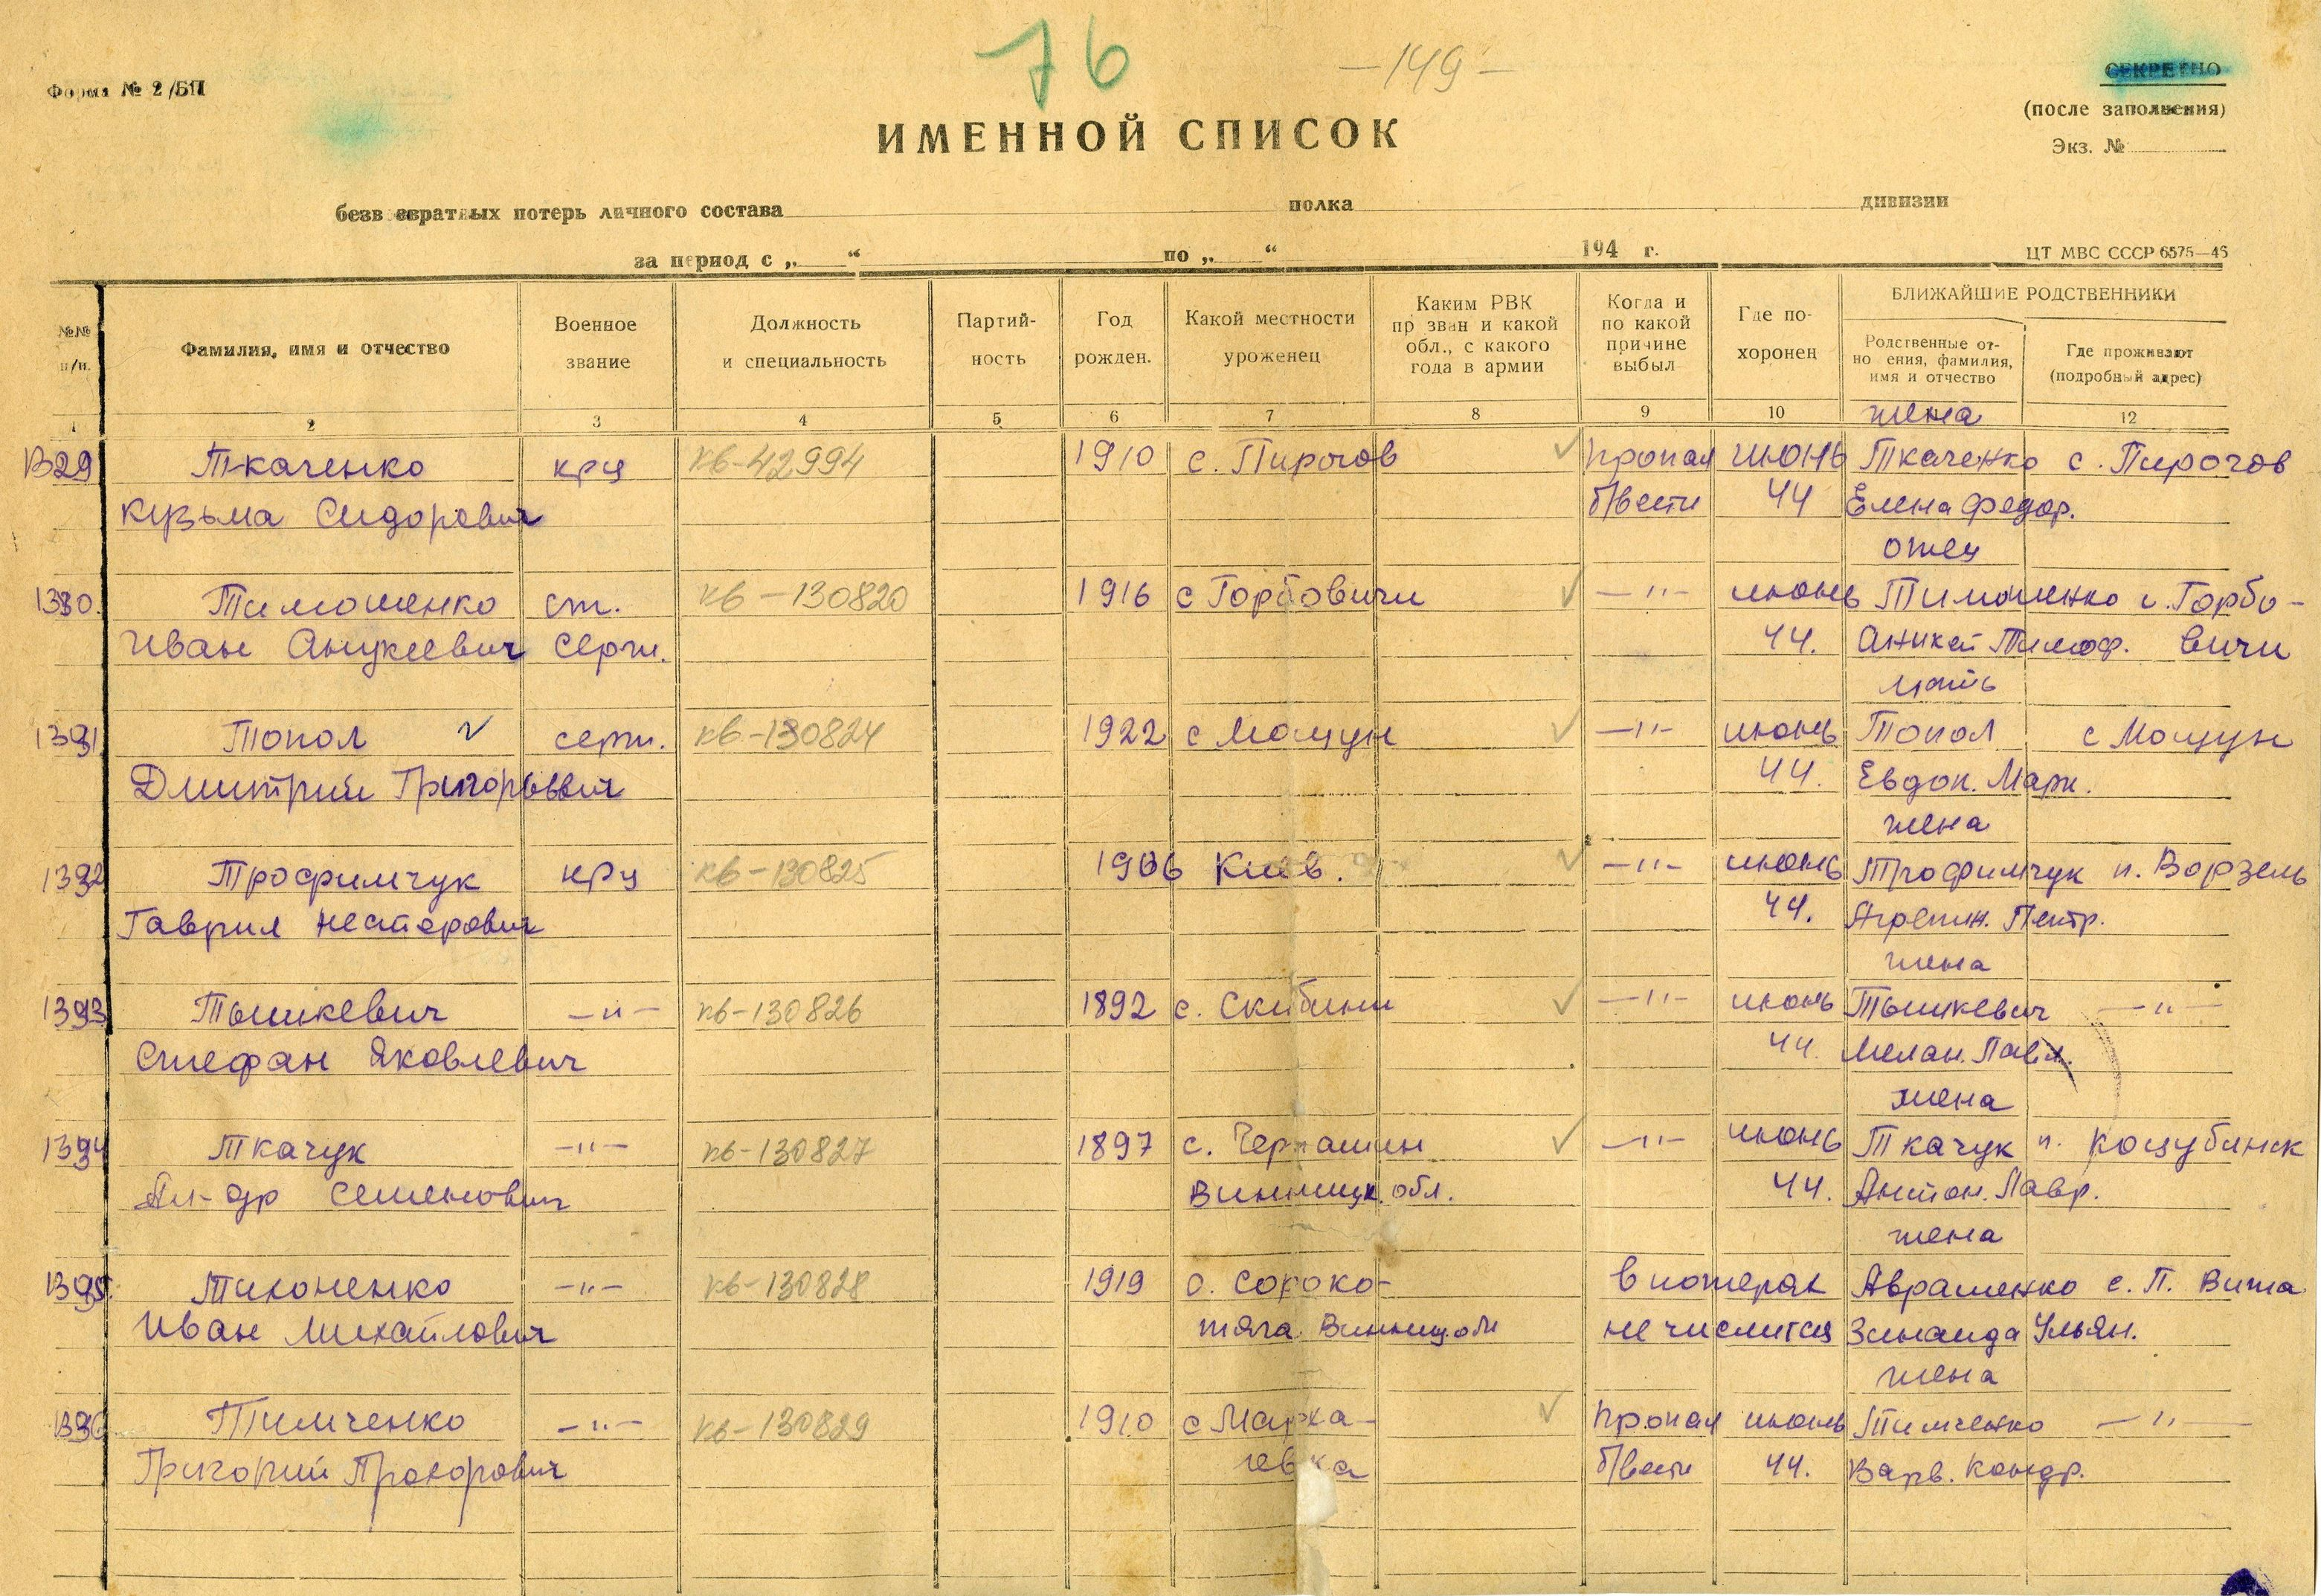 76 — 149 —
Форма № 2/БП
СЕКРЕТНО
(после заполнения)
Экз. №
ИМЕННОЙ СПИСОК
безвозвратных потерь личного состава полка дивизии
за период с „ “ по „ “ 194 г.
ЦТ МВС СССР 6575—46
№№ п/п.
Фамилия, имя и отчество
Военное звание
Должность и специальность
Партий-
ность
Год рожден.
Какой местности уроженец
Каким РВК
призван и какой
обл., с какого
года в армии
Когда и
по какой
причине
выбыл
Где по-
хоронен
БЛИЖАЙШИЕ РОДСТВЕННИКИ
Родственные от-
но ения, фамилия,
имя и отчество
Где проживают
(подробный адрес)
1 2 3 4 5 6 7 8 9 10 12
жена
Ткаченко крц кв-42994 1910 с. Пирогов пропал июнь Ткаченко с. Пирогов
Кузьма Сидорович б/вести 44 Елена Федор.
отец
Тимошенко ст. кв-130820 1916 с Горбовичи —"— июнь Тимошенко с. Горбо-
Иван Аникеевич серж. 44. Аникей Тимоф. вичи
мать
Топол серж. кв-130824 1922 с Мощун —"— июнь Топол с Мощун
Дмитрий Григорьевич 44. Евдок. Марк.
жена
1392 Трофимчук крц кв-130825 1906 Киев. —"— июнь Трофимчук п. Ворзель
Гаврил Несторович 44. Агрепин. Петр.
жена
1393 Тышкевич —"— кв-130826 1892 с. Скибини —"— июнь Тышкевич —"—
Стефан Яковлевич 44. Мелан. Павл.
жена
1394 Ткачук —"— кв-130827 1897 с. —"— июнь Ткачук п. Коцубинск
Ал-др Семенович Винницк. обл. 44. Антон. Лавр.
жена
1395. Тихоненко —"— кв-130828 1919 с. Сороко- в потерях Авраменко с. П. Вита
Иван Михайлович тяга. Винниц. обл не числится Зинаида Ульян.
жена
Тимченко —"— кв-130829 1910 с пропал июнь Тимченко —"—
Григорий Прохорович б/вести 44. Варв. Кондр.